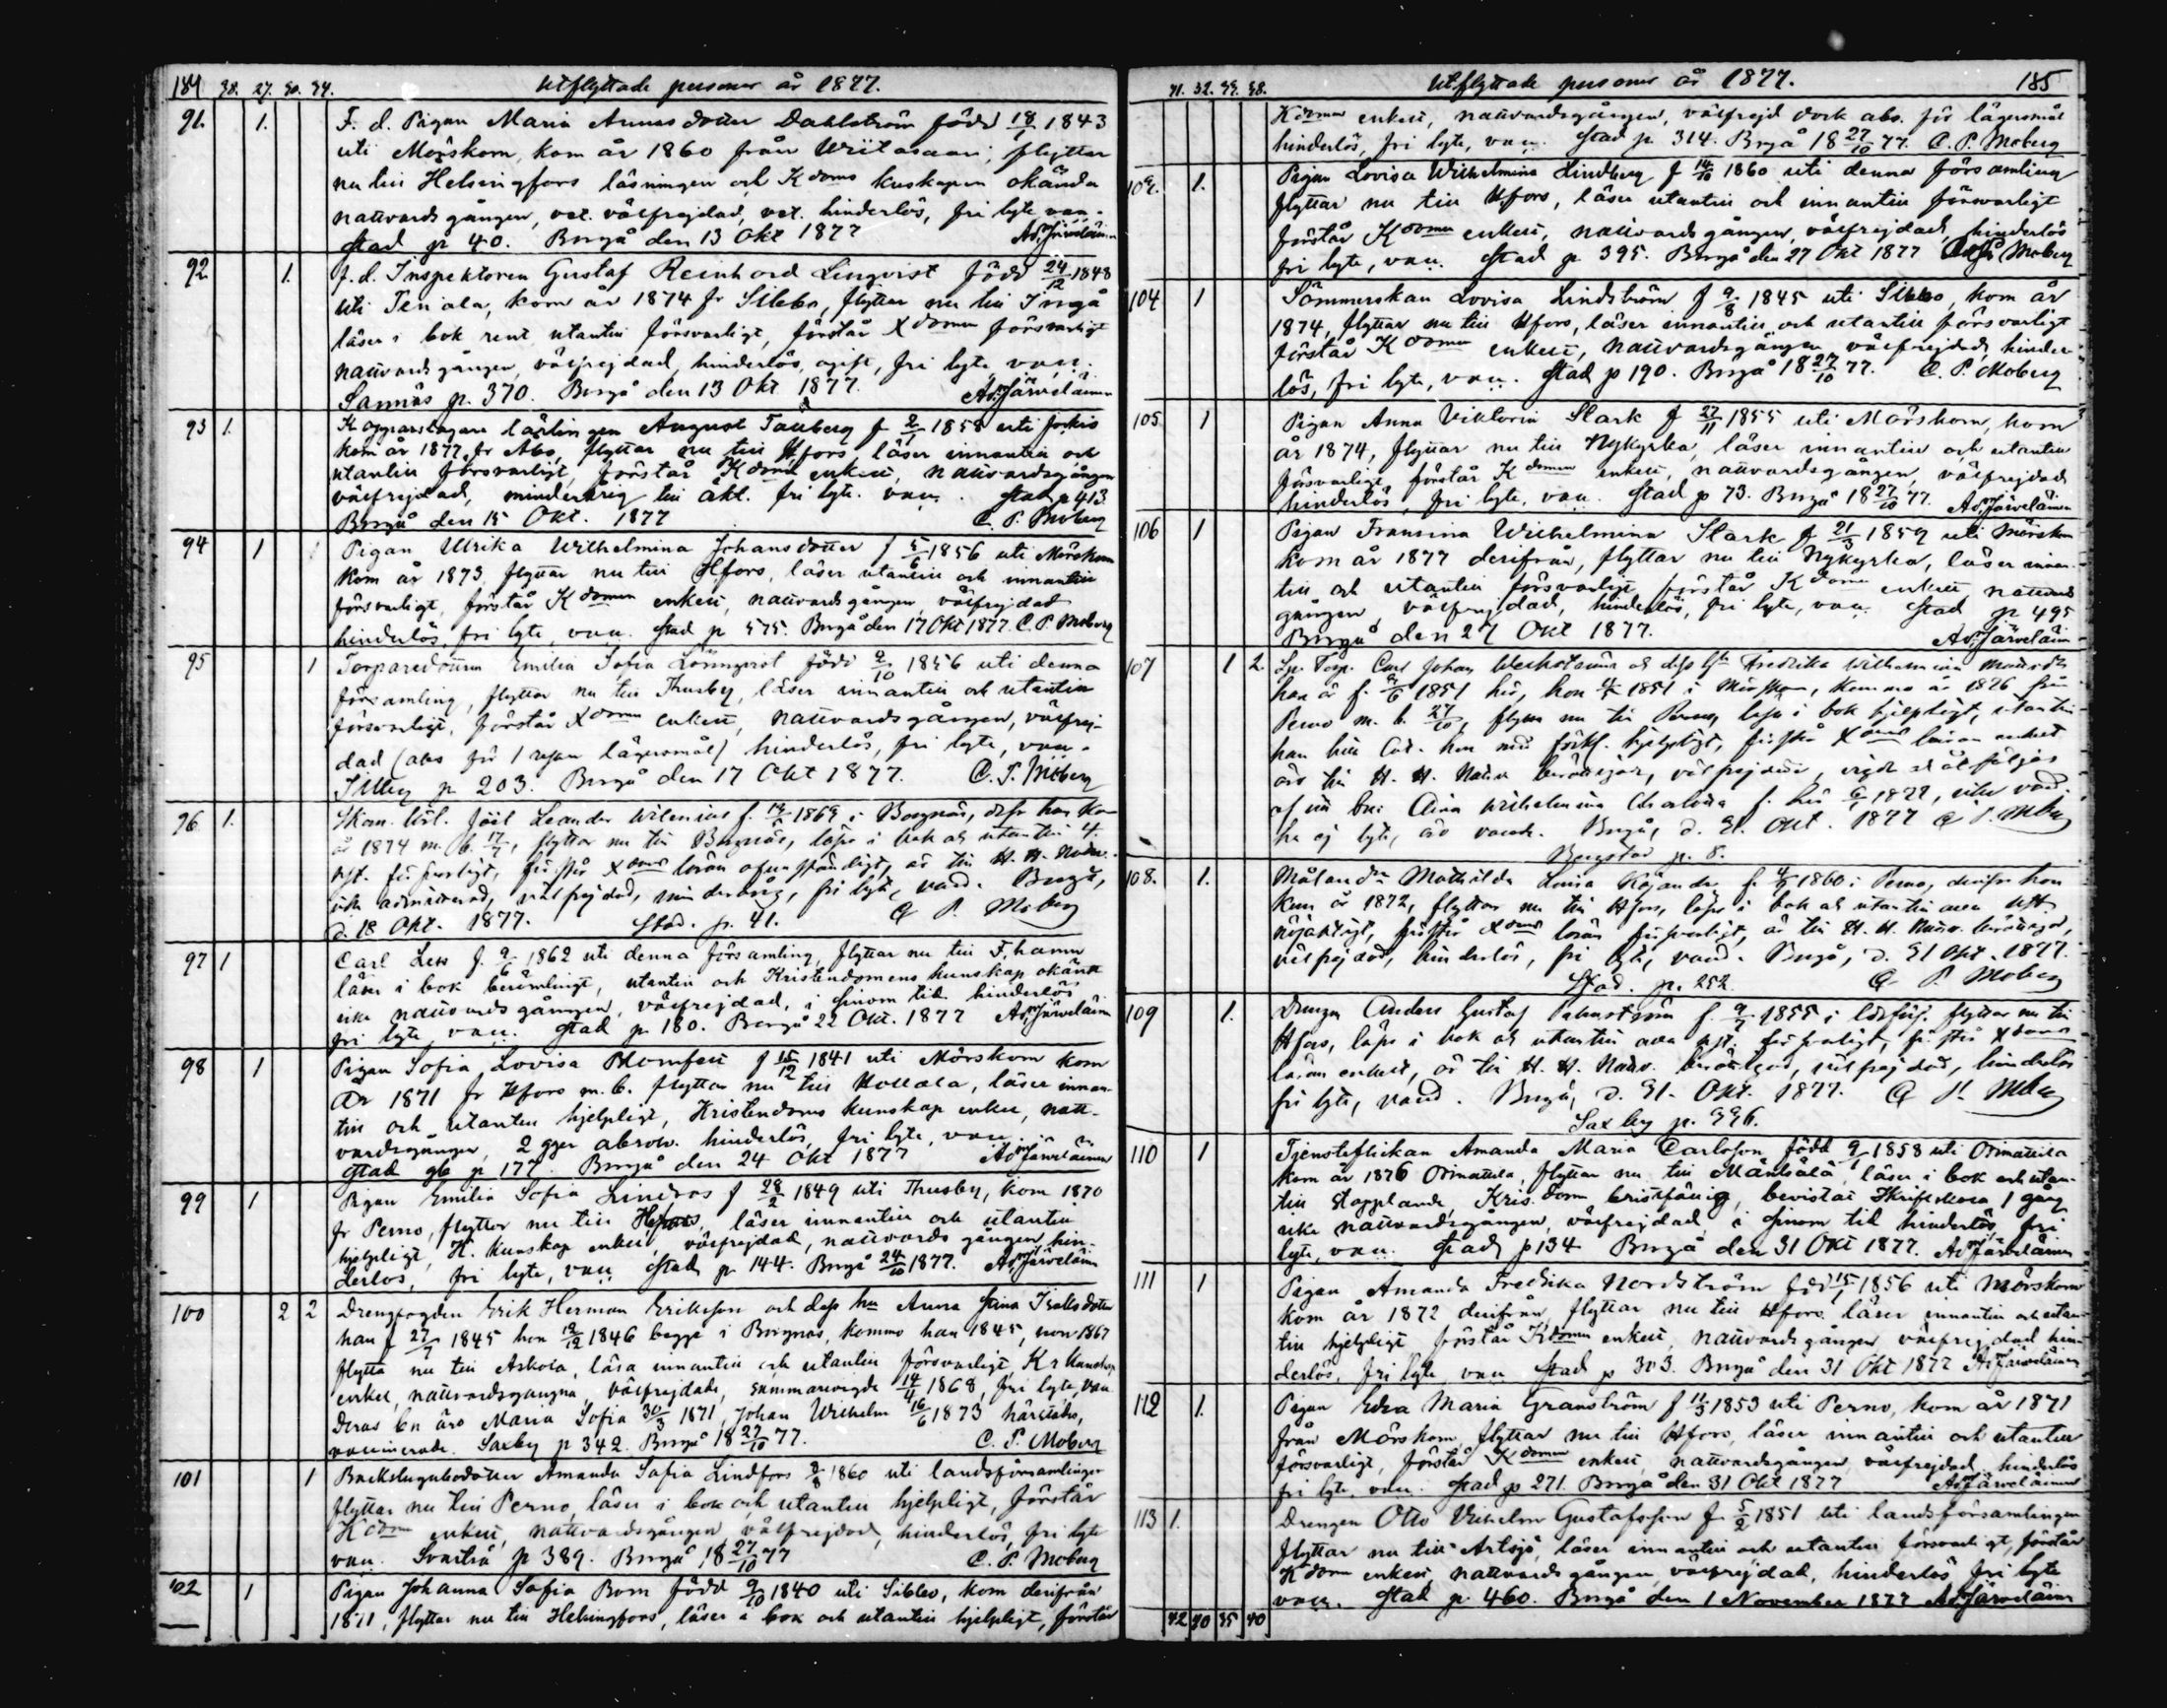 184 38. 27. 30. 34. Utflyttade personer år 1877.
91. 1. F. d. Pigan Maria Annasdotter Dahlström född 18/1 1843
uti Mörskom, kom år 1860 från Wiitasaari, flyttar
nu till Helsingfors läsningen och Kdoms kuskapen okända
nattvardsgången, vet. välfrejdad, vet. hinderlös, fri lyte vac.
Stad p 40. Borgå den 13 Okt 1877 Ad. Järveläinen
92 1. f. d. Inspektoren Gustaf Reinhord Linqvist född 24/12 1848
uti Tenala, kom år 1874 fr Sibbo, flyttar nu till Ingå
läser i bok rent utantill försvarligt, förstår Xdomen försvarligt
nattvardsgången, välfrejdad, hinderlös, ogift, fri lyte vacc.
Sannäs p. 370. Borgå den 13 Okt 1877. Ad. Järveläinen
93 1. Kopparslagare lärlingen August Tauberg f 2/1 1858 uti Jockis
kom år 1877 fr Åbo, flyttar nu till Hfors, läser innantill och
utantill försvarligt, förstår Kdomen enkelt, nattvardsgången
välfrejdad, minderårig till äkt. fri lyte. vacc. Stad p 413
Borgå den 15 Okt. 1877 C. P. Moberg
94 1 Pigan Ulrika Wilhelmina Johansdotter f 5/6 1856 uti Mörskom
Kom år 1873, flyttar nu till Hfors, läser utantill och innantill
försvarligt, förstår Kdomen enkelt, nattvardsgången, välfrejdad
hinderlös, fri lyte, vacc. Stad p 575. Borgå den 17 Okt 1877. C. P. Moberg
95 1 Torparedottren Emilia Sofia Lönnqvist född 9/10 1856 uti denna
församling, flyttar nu till Thusby, läser innantill och utantill
försvarligt, förstår Xdomen enkelt, nattvardsgången, välfrej-
dad (abs för 1 resan lägersmål) hinderlös, fri lyte, vac.
Illby p 203. Borgå den 17 Okt 1877. C. P. Moberg
96 1. Skom. lärl. Joël Leander Wilenius f. 1869 i Borgnäs, derfr han kom
år 1874 m. b. 17/7, flyttar nu till Borgnäs, läser i bok och utantill
försvarligt, förstår Xdoms läran ofullständigt, är till H. H. Nattv.
icke admitterad, välfrejdad, minderårig, fri lyte, vacc. Borgå,
d. 18 Okt. 1877. Stad. p. 41. C. P. Moberg
97 1 Carl f. 9/6 1862 uti denna församling, flyttar nu till F.hamn
läser i bok berömligt, utantill och Kristendomens kunskap okändt
icke nattvardsgången, välfrejdad, i sinom tid hinderlös
fri lyte, vacc. Stad p 180. Borgå 22 Okt. 1877 Ad. Järveläinen
98 1 Pigan Sofia Lovisa f 15/12 1841 uti Mörskom kom
år 1871 fr Hfors m. b. flyttar nu till Hollola, läser innan-
till och utantill hjelpligt, Kristendoms kunskap enkel, natt-
vardsgången, 2 ggr absolv. hinderlös, fri lyte, vacc.
Stad p 177. Borgå den 24 Okt 1877 Ad. Järveläinen
99 1 Pigan Emilia Sofia Lindros f 28/2 1849 uti Thusby, kom 1870
fr Perno, flyttar nu till Hfors, läser innantill och utantill
hjelpligt, K. kunskap enkel, välfrejdad, nattvardsgången, hin-
derlös, fri lyte, vacc Stad p 144. Borgå 24/10 1877. Ad. Järveläinen
100 2 2 Drengfogden Erik Herman Eriksson och dess hu Anna Stina Isaksdotter
han f 27/7 1845 hon 12/12 1846 begge i Borgnäs, kommo han 1845, hon 1867
flytta nu till Askola, läsa innantill och utantill försvarligt, Kr kunskap
enkel, nattvardsgångna, välfrejdade, sammanvigde 14/4 1868, fri lyte, vac
Deras bn äro Maria Sofia 30/3 1871, Johan Wilhelm 16/6 1873
vaccinerade. Saxby p 342. Borgå 18 27/10 77. C. P. Moberg
101 1 Backstuguhodotter Amanda Sofia Lindfors 1860 uti landsförsamlingen
flyttar nu till Perno, läser i bok och utantill hjelpligt, förstår
Kdom enkelt, nattvardsgången, välfrejdad, hinderlös, fri lyte
vacc. Svartså p 389. Borgå 18 27/10 77 C. P. Moberg
102 1 Pigan Johanna Sofia Bom född 9/10 1840 uti Sibbo, kom derifrån
1871, flyttar nu till Helsingfors, läser i bok och utantill hjelpligt, förstår
41. 32. 34. 38. Utflyttade personer år 1877. 185
Kdomen enkelt, nattvardsgången, välfrejd dock abs. för lägersmål
hinderlös, fri lyte, vacc. Stad p. 314. Borgå 18 27/10 77. C. P. Moberg
103. 1. Pigan Lovisa Wilhelmina Lindberg f 14/10 1860 uti denna församling
flyttar nu till Hfors, läser utantill och innantill försvarligt
förstår Kdomen enkelt, nattvardsgången, välfrejdad, hinderlös
fri lyte, vacc. Stad p 395. Borgå den 27 Okt 1877 Moberg
104 1 Sömmerskan Lovisa Lindström f 9/8 1845 uti Sibbo, kom år
1874, flyttar nu till Hfors, läser innantill och utantill försvarligt
förstår Kdomen enkelt, nattvardsgången, välfrejdad, hinder-
lös, fri lyte, vacc. Stad p 190. Borgå 18 27/10 77. C. P. Moberg
105 1 Pigan Anna Viktoria Stark f 27/11 1855 uti Mörskom, kom
år 1874, flyttar nu till Nykyrka, läser innantill och utantill
försvarligt förstår Kdomen enkelt, nattvardsgången, välfrejdad
hinderlös, fri lyte, vacc. Stad p 73. Borgå 18 27/10 77. Ad. Järveläinen
106 1 Pigan Fransina Wilhelmina Stark f 21/3 1859 uti Mörskom
kom år 1877 derifrån, flyttar nu till Nykyrka, läser innan-
till och utantill försvarligt förstår Kdomen enkelt nattvards
gången, välfrejdad, hinderlös, fri lyte, vacc. Stad p 495
Borgå den 27 Okt 1877. Ad. Järveläinen
107 1 2 Torp. Carl Johan och dess hu Fredrika Wilhelmina
han är f. 1851 här, hon 1851 i Mörskom, kommo år 1876 från
Perno m. b. 27/10, flytta nu till Perno, läsa i bok hjelpligt, utantill
han hon hjelpligt, förstå Xdoms läran enkelt
äro till H. H. Nattv. berättigade, välfrejdade, vigde och åtföljas
af sin bn Aina Wilhelmina f. här 1877,
ha ej lyte, äro vaccin. Borgå, d. 31. Okt. 1877 C. P. Moberg
Bergstad p. 8.
108. 1. Målaredr Mathilda Lovisa f. 1860 i Perno, derifr hon
kom år 1872, flyttar nu till Hfors, läser i bok och utantill
nöjaktigt, förstår Xdoms läran försvarligt, är till H. H. Nattv. berättigad,
välfrejdad, hinderlös, fri lyte, vacc. Borgå, d. 31 Okt. 1877.
Stad. p. 252. C. P. Moberg
109 1. Drengen Anders Gustaf f. 9/7 1855 i ldsförs. flyttar nu till
Hfors, läser i bok och utantill försvarligt, förstår Xdoms
läran enkelt, är till H. H. Nattv. berättigad, välfrejdad, hinderlös
fri lyte, vacc. Borgå, d. 31. Okt. 1877. C. P. Moberg
Saxby p. 336.
110 1 Tjensteflickan Amanda Maria Carlsson född 9/1 1858 uti Orimattila
kom år 1876 Orimattila, flyttar nu till Mäntsälä, läser i bok och utan-
till stapplande, Kris.dom bristfällig, bevistat Skriftskola 1 gång
icke nattvardsgången, välfrejdad, i sinom tid hinderlös, fri
lyte, vacc. Stad p 134 Borgå den 31 Okt 1877. Ad. Järveläinen
111 1 Pigan Amanda Fredrika Nordström född 15/1 1856 uti Mörskom
kom år 1872 derifrån, flyttar nu till Hfors läser innantill och utan-
till hjelpligt förstår Kdomen enkelt, nattvardsgången välfrejdad hin-
derlös, fri lyte, vacc Stad p 303. Borgå den 31 Okt 1877 Ad. Järveläinen
112 1. Pigan Edla Maria Granström f 11/3 1853 uti Perno, kom år 1871
från Mörskom, flyttar nu till Hfors, läser innantill och utantill
försvarligt, förstår Kdomen enkelt, nattvardsgången, välfrejdad, hinderlös
fri lyte, vacc. Stad p 271. Borgå den 31 Okt 1877 Ad. Järveläinen
113 1. Drengen Otto Vilhelm Gustafsson f 5/2 1851 uti landsförsamlingen
flyttar nu till Artsjö, läser innantill och utantill försvarligt, förstår
Kdom enkelt, nattvardsgången, välfrejdad, hinderlös, fri lyte
vacc. Stad p. 460. Borgå den 1 November 1877 Ad. Järveläinen
42 40 35 40